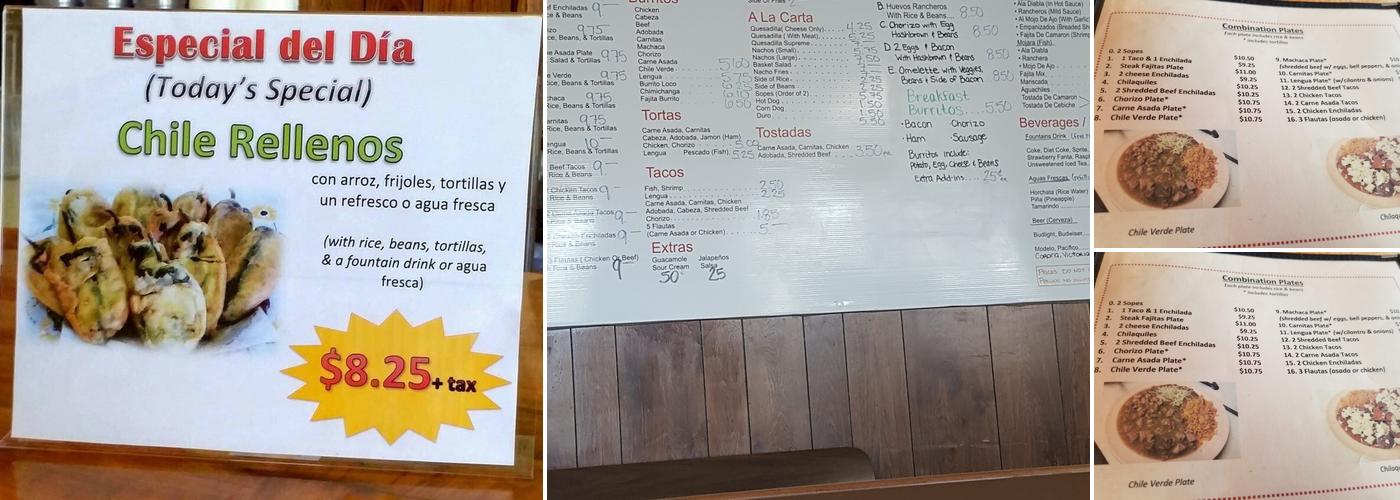 Especial del Día
(Today's Special)
Chile Rellenos
con arroz, frijoles, tortillas y
un refresco o agua fresca
(with rice, beans, tortillas,
& a fountain drink or agua
fresca)
$8.25 + tax
Enchiladas 9—
& Beans
9.75
Beans, & Tortillas
Asada Plate 9.75
Salad & Tortillas
Verde 9.75
Beans, & Tortillas
9.75
Rice, Beans, & Tortillas
9.75
Rice, Beans, & Tortillas
10—
Rice, Beans, & Tortillas
Beef Tacos 9—
Rice & Beans
Chicken Tacos 9—
Rice & Beans
Tacos 9—
Enchiladas 9—
Rice & Beans
Flautas (Chicken Or Beef)
Rice & Beans 9—
Burritos
Chicken
Cabeza
Beef
Adobada
Carnitas
Machaca
Chorizo
Carne Asada
Chile Verde
Lengua
Burrito Loco
Chimichanga
Fajita Burrito
Tortas
Carne Asada, Carnitas
Cabeza, Adobada, Jamon (Ham)
Chicken, Chorizo 5.00
Lengua Pescado (Fish) 5.25
Tacos
Fish, Shrimp 2.50
Lengua 2.25
Carne Asada, Carnitas, Chicken
Adobada, Cabeza, Shredded Beef
Chorizo 1.85
5 Flautas
(Carne Asada or Chicken) 5—
Extras
Guacamole Jalapeños
Sour Cream Salsa
50¢ 25
A La Carta
Quesadilla( Cheese Only) 4.25
Quesadilla ( With Meat)
Quesadilla Supreme
Nachos (Small)
Nachos (Large)
Basket Salad
Nacho Fries
Side of Rice
Side of Beans
Sopes (Order of 2)
Hot Dog
Corn Dog
Duro
Tostadas
Carne Asada, Carnitas, Chicken
Adobada, Shredded Beef 3.50
B. Huevos Rancheros
With Rice & Beans 8.50
C. Chorizo with Egg
Hashbrown & Beans 8.50
D. 2 Eggs & Bacon
With Hashbrown & Beans 8.50
E. Omelette with Veggies,
Beans & Side of Bacon 8.50
Breakfast
Burritos 5.50
•Bacon •Chorizo
•Ham •Sausage
Burritos include:
Potato, Egg, Cheese & Beans
Extra Add-ins 25¢
• Ala Diabla (In Hot Sauce)
• Rancheros (Mild Sauce)
• Al Mojo De Ajo (With Garlic
• Empanizados (Breaded Sh
• Fajita De Camaron (Shrimp
Mojara (Fish)
• Ala Diabla
• Ranchera
• Mojo De Ajo
Fajita Mix
Mariscada
Aguachiles
Tostada De Camaron
Tostada De Cebiche
Beverages /
Fountains Drink
Coke, Diet Coke, Sprite,
Strawberry Fanta,
Unsweetened Iced Tea
Aguas Frescas
Horchata (Rice Water)
Piña (Pineapple)
Tamarindo
Beer (Cerveza)
Budlight, Budwiser
Modelo, Pacifico
Corona, Victoria
Combination Plates
Each plate includes rice & beans
* includes tortillas
0. 2 Sopes
1. 1 Taco & 1 Enchilada $10.50
2. Steak Fajitas Plate $9.25
3. 2 cheese Enchiladas $11.00
4. Chilaquiles $9.25
5. 2 Shredded Beef Enchiladas $10.25
6. Chorizo Plate* $10.25
7. Carne Asada Plate* $10.75
8. Chile Verde Plate* $10.75
9. Machaca Plate*
(shredded beef w/ eggs, bell peppers, & oni
10. Carnitas Plate*
11. Lengua Plate* (w/cilantro & onions)
12. 2 Shredded Beef Tacos
13. 2 Chicken Tacos
14. 2 Carne Asada Tacos
15. 2 Chicken Enchiladas
16. 3 Flautas (asada or chicken)
Chile Verde Plate
Combination Plates
Each plate includes rice & beans
* includes tortillas
0. 2 Sopes
1. 1 Taco & 1 Enchilada $10.50
2. Steak Fajitas Plate $9.25
3. 2 cheese Enchiladas $11.00
4. Chilaquiles $9.25
5. 2 Shredded Beef Enchiladas $10.25
6. Chorizo Plate* $10.25
7. Carne Asada Plate* $10.75
8. Chile Verde Plate* $10.75
9. Machaca Plate*
(shredded beef w/ eggs, bell peppers, & oni
10. Carnitas Plate*
11. Lengua Plate* (w/cilantro & onions)
12. 2 Shredded Beef Tacos
13. 2 Chicken Tacos
14. 2 Carne Asada Tacos
15. 2 Chicken Enchiladas
16. 3 Flautas (asada or chicken)
Chile Verde Plate